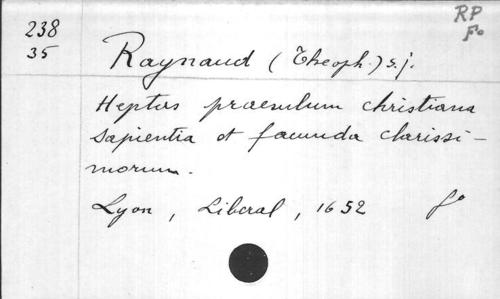 238
35
RP
Fo
Raynaud (Theoph.) s.j.
Heptas praesulum christiana
sapientia et facunda clarissi-
morum.
Lyon, Liberal, 1652 fo